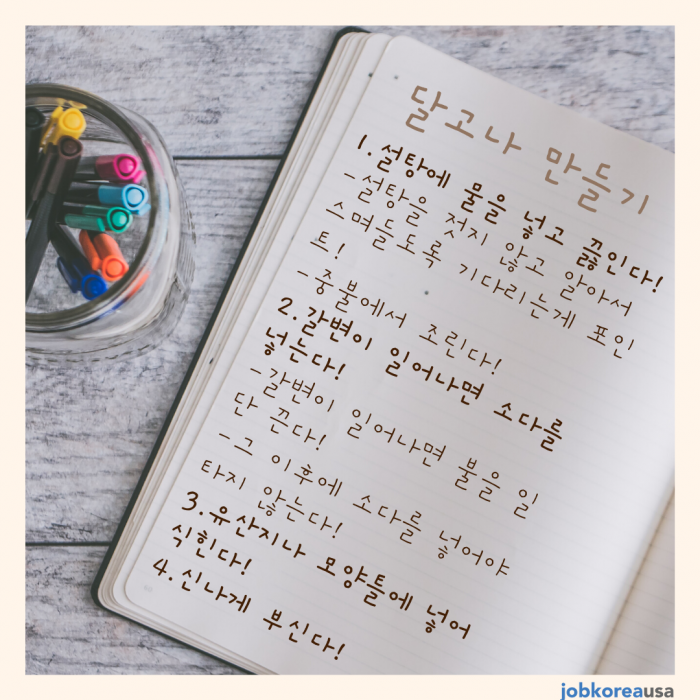 달고나 만들기
1. 설탕에 물을 넣고 끓인다!
-설탕을 젓지 않고 알아서
스며들도록 기다리는게 포인
트!
-중불에서 조린다!
2. 갈변이 일어나면 소다를
넣는다!
-갈변이 일어나면 불을 일
단 끈다!
-그 이후에 소다를 넣어야
타지 않는다!
3. 유산지나 모양틀에 넣어
식힌다!
4. 신나게 부신다!
jobkoreausa